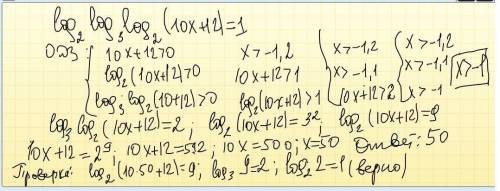 log₂ log₃ log₂(10x+12)=1
ОДЗ: { 10x+12>0 x>-1,2 { x>-1,2 { x>-1,2
log₂(10x+12)>0 10x+12>1 x>-1,1 x>-1,1 x>-1
log₃ log₂(10+12)>0 log₂(10x+12)>1 10x+12>2 x>-1
log₃ log₂(10x+12)=2; log₂(10x+12)=3²; log₂(10x+12)=9
10x+12=2⁹; 10x+12=512; 10x=500; x=50 Ответ: 50
Проверка: log₂(10·50+12)=9; log₃ 9=2; log₂ 2=1 (верно)